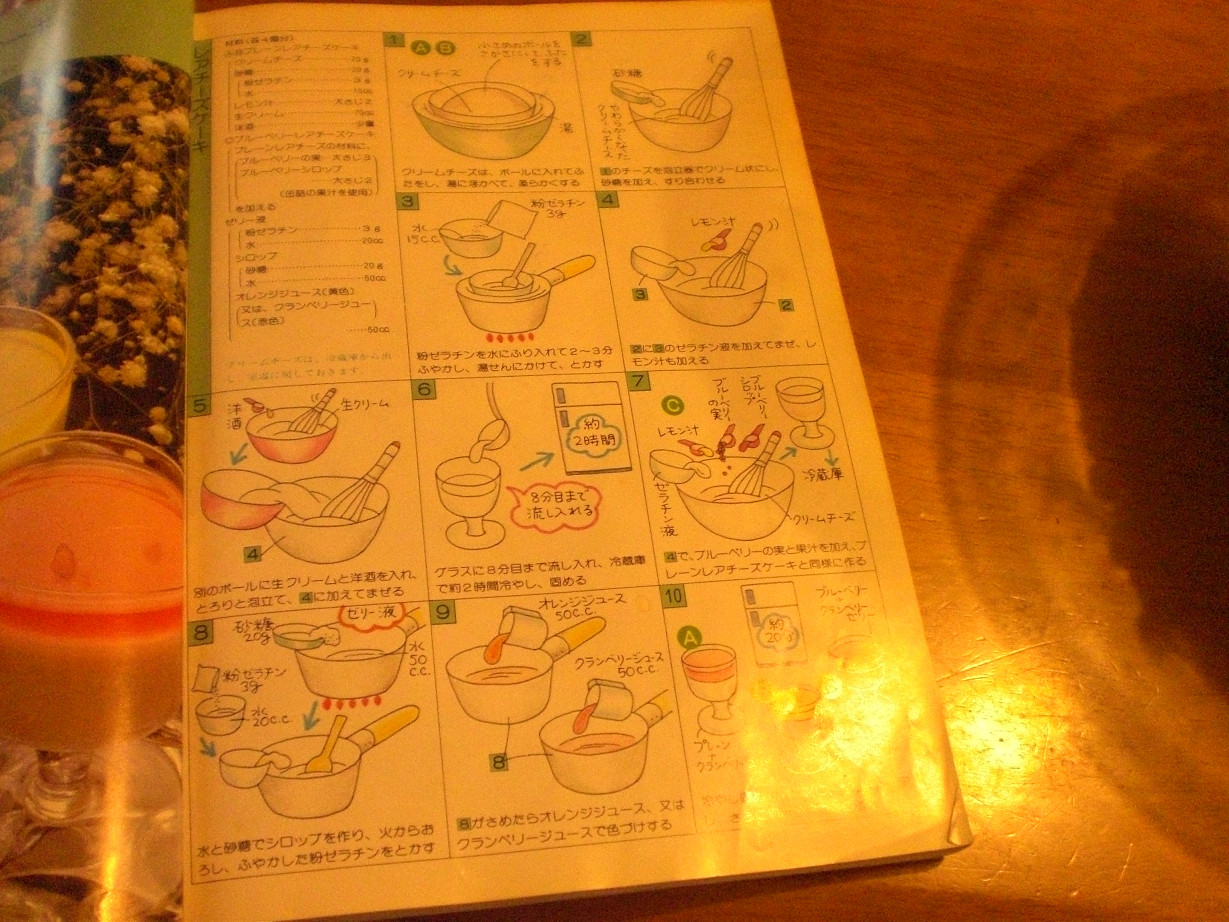 レアチーズケーキ
材料(各4個分)
プレーンレアチーズケーキ
クリームチーズ
砂糖 20g
粉ゼラチン 3g
水 15cc
レモン汁 大さじ2
生クリーム
洋酒 少量
ブルーベリーレアチーズケーキ
プレーンレアチーズの材料に、
ブルーベリーの実 大さじ3
ブルーベリーシロップ
大さじ2
(缶詰の果汁を使用)
を加える
ゼリー液
粉ゼラチン 3g
水 20cc
シロップ
砂糖 20g
水 50cc
オレンジジュース(黄色)
又は、クランベリージュー
ス(赤色)
50cc
クリームチーズは、冷蔵庫から出
し、室温に戻しておきます。
1
A B
小さめのボールを
さかさにしてふた
をする
クリームチーズ
湯
クリームチーズは、ボールに入れてふ
たをし、湯に浮かべて、柔らかくする
2
砂糖
やわらかくなった
クリームチーズ
1のチーズを泡立器でクリーム状にし、
砂糖を加え、すり合わせる
3
粉ゼラチン
3g
水
15C.C.
粉ゼラチンを水にふり入れて2〜3分
ふやかし、湯せんにかけて、とかす
4
レモン汁
3
2
2に3のゼラチン液を加えてまぜ、レ
モン汁も加える
5
洋酒
生クリーム
4
別のボールに生クリームと洋酒を入れ、
とろりと泡立て、4に加えてまぜる
6
約
2時間
8分目まで
流し入れる
グラスに8分目まで流し入れ、冷蔵庫
で約2時間冷やし、固める
7
C
ブルーベリーの実
ブルーベリーシロップ
レモン汁
ゼラチン液
冷蔵庫
クリームチーズ
4で、ブルーベリーの実と果汁を加え、プ
レーンレアチーズケーキと同様に作る
8
砂糖
20g
ゼリー液
水
50
C.C.
粉ゼラチン
3g
水
20C.C.
水と砂糖でシロップを作り、火からお
ろし、ふやかした粉ゼラチンをとかす
9
オレンジジュース
50C.C.
クランベリージュース
50C.C.
8
8がさめたらオレンジジュース、又は
クランベリージュースで色づけする
10
A
約
20分
ブルーベリー
クランベリー
ゼリー
プレーン
クランベリー